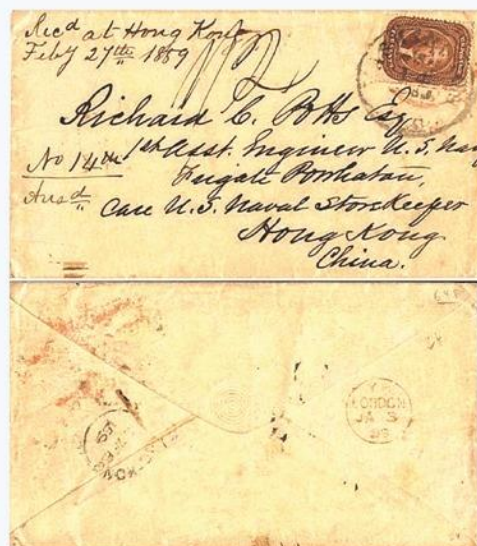 Recd at Hong Kong
Feby 27th 1859
Richard C. Potts Esq
1st Asst. Engineer U. S. Nav
No 14th
Frigate Powhatan,
Ansd
Care U. S. Naval StoreKeeper
Hong Kong
China.
LONDON
JA 3
59